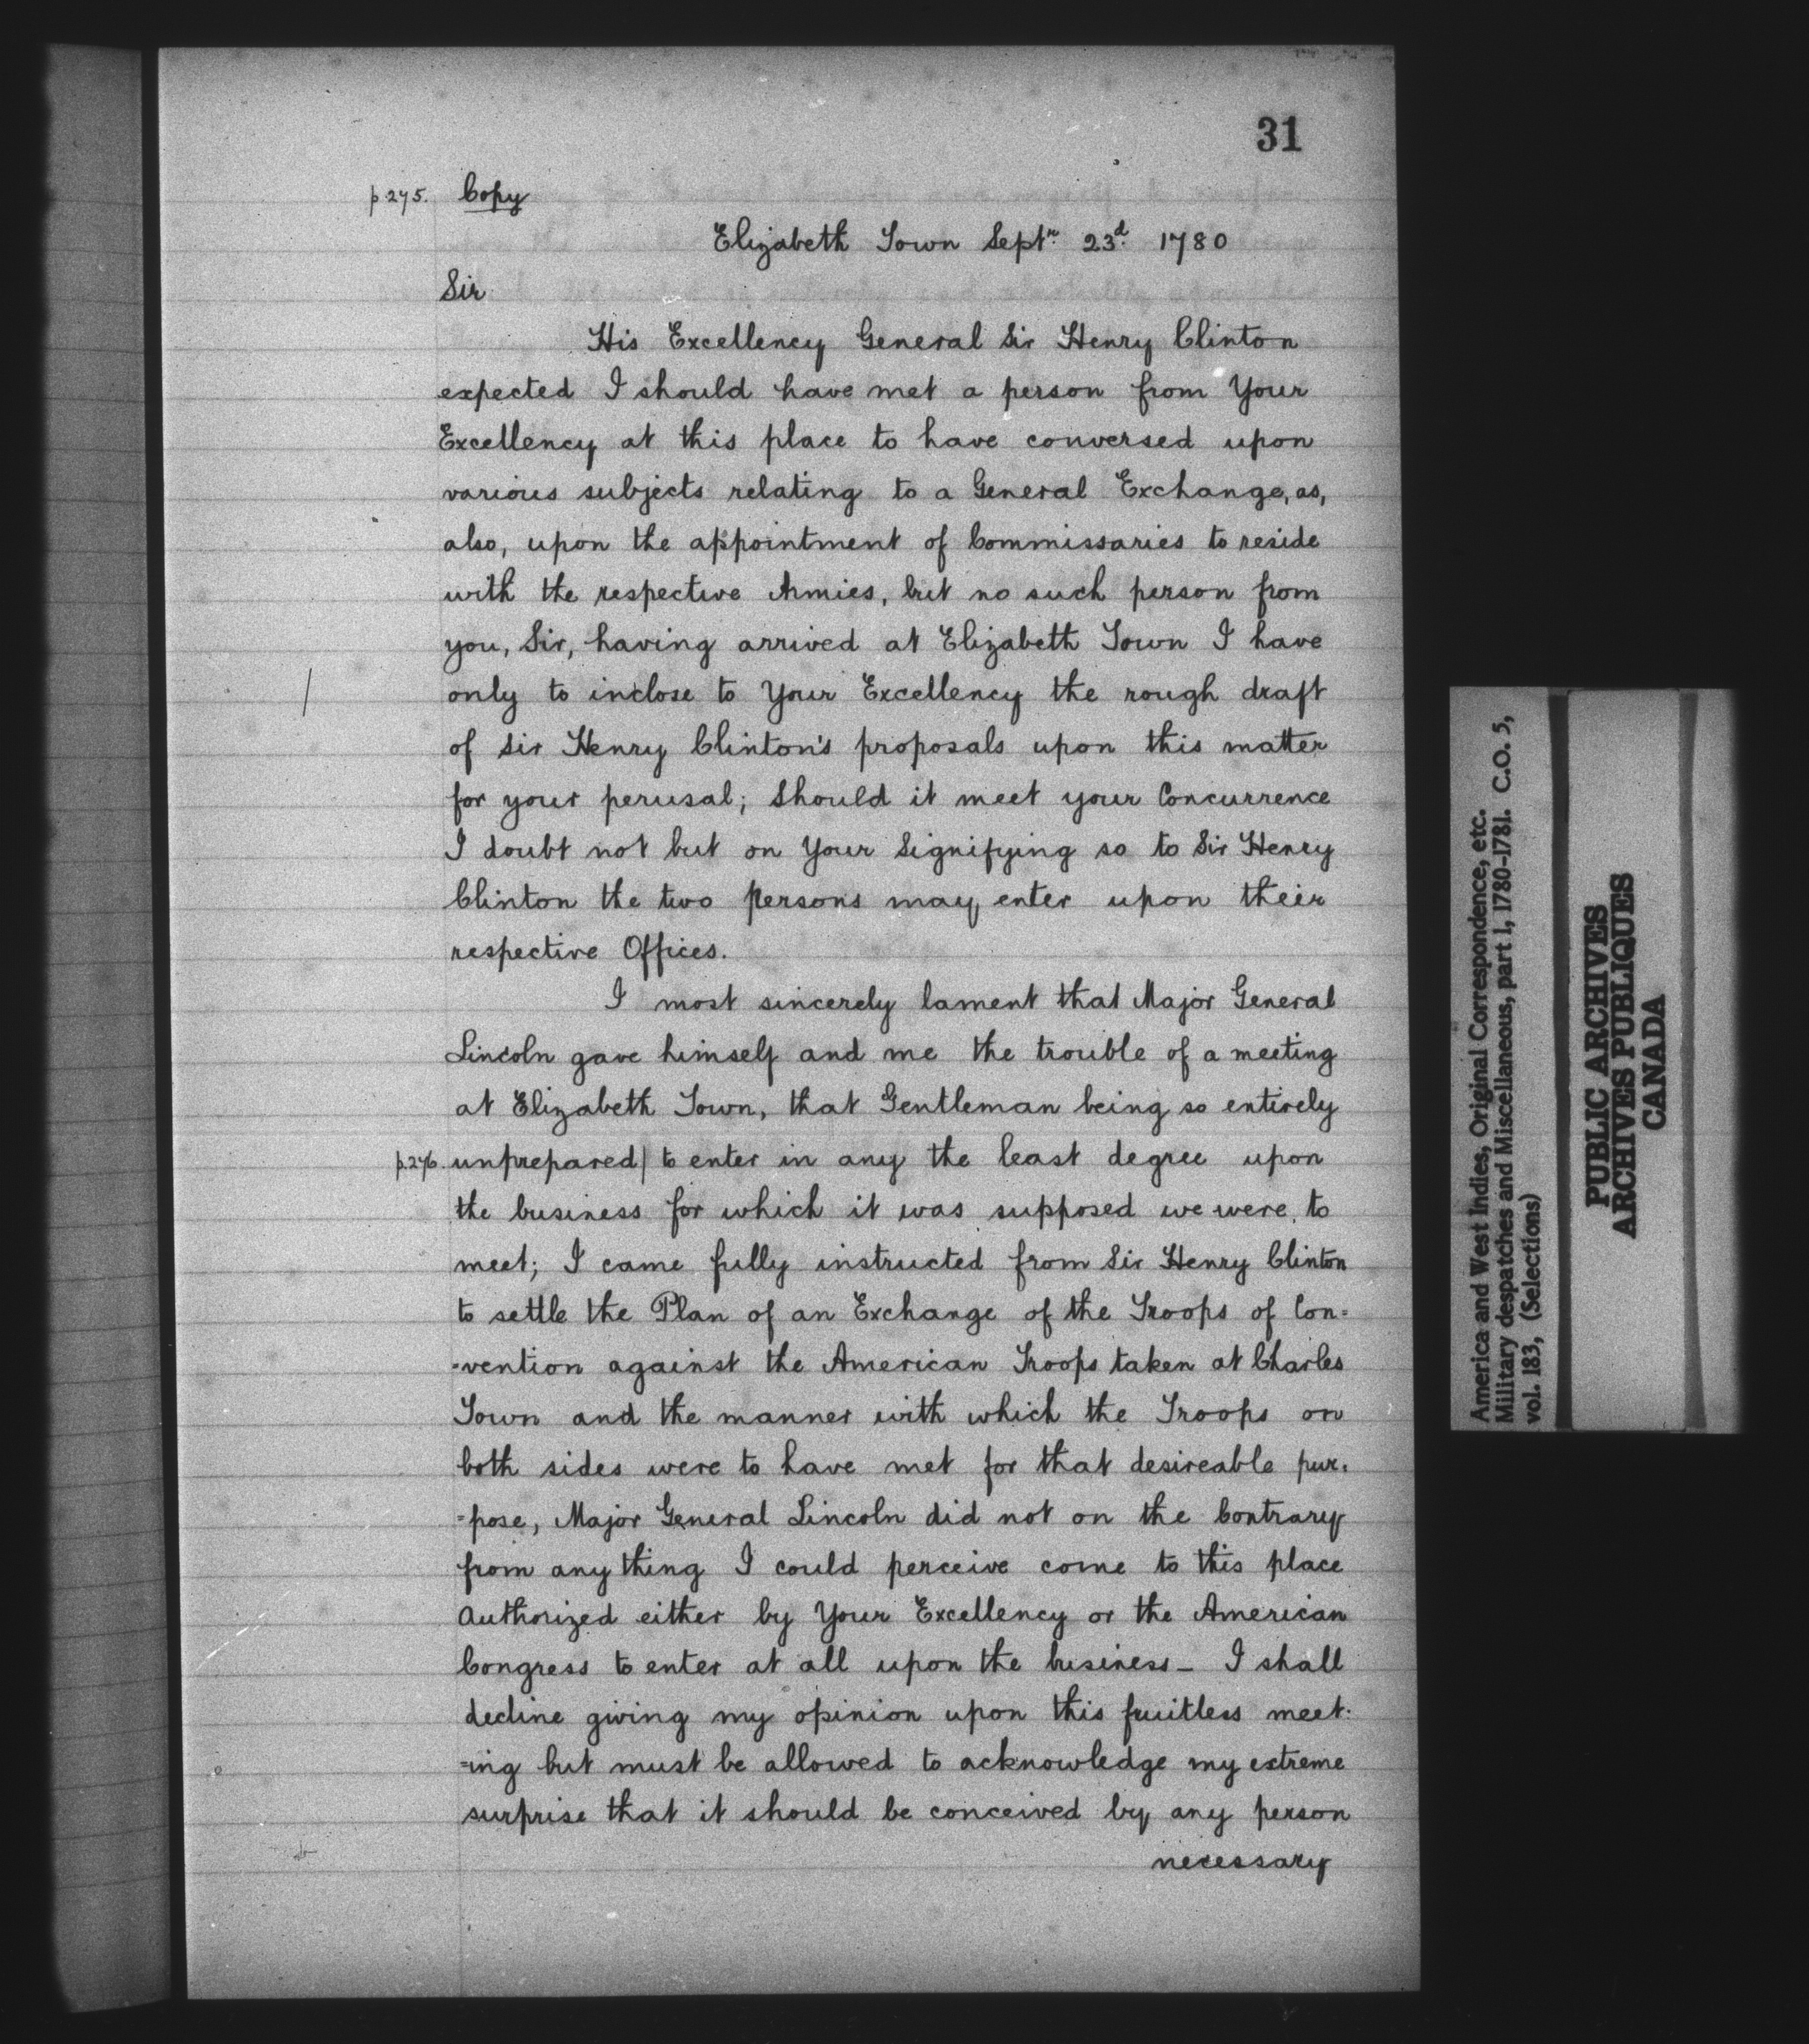 31
p.275. Copy
Elizabeth Town Septr. 23d. 1780
Sir
His Excellency General Sir Henry Clinton
expected I should have met a person from Your
Excellency at this place to have conversed upon
various subjects relating to a General Exchange, as,
also, upon the appointment of Commissaries to reside
with the respective Armies, but no such person from
you, Sir, having arrived at Elizabeth Town I have
only to inclose to Your Excellency the rough draft
of Sir Henry Clinton's proposals upon this matter
for your perusal; Should it meet your Concurrence
I doubt not but on Your Signifying so to Sir Henry
Clinton the two Persons may enter upon their
respective Offices.
I most sincerely lament that Major General
Lincoln gave himself and me the trouble of a meeting
at Elizabeth Town, that Gentleman being so entirely
p.276. unprepared| to enter in any the least degree upon
the business for which it was supposed we were to
meet; I came fully instructed from Sir Henry Clinton
to settle the Plan of an Exchange of the Troops of Con=
=vention against the American Troops taken at Charles
Town and the manner with which the Troops on
both sides were to have met for that desireable pur=
=pose, Major General Lincoln did not on the Contrary
from any thing I could perceive come to this place
Authorized either by Your Excellency or the American
Congress to enter at all upon the business_ I shall
decline giving my opinion upon this fruitless meet=
=ing but must be allowed to acknowledge my extreme
surprise that it should be conceived by any person
necessary
America and West Indies, Original Correspondence, etc.
Military despatches and Miscellaneous, part 1, 1780-1781. C.O. 5,
vol. 183, (Selections)
PUBLIC ARCHIVES
ARCHIVES PUBLIQUES
CANADA